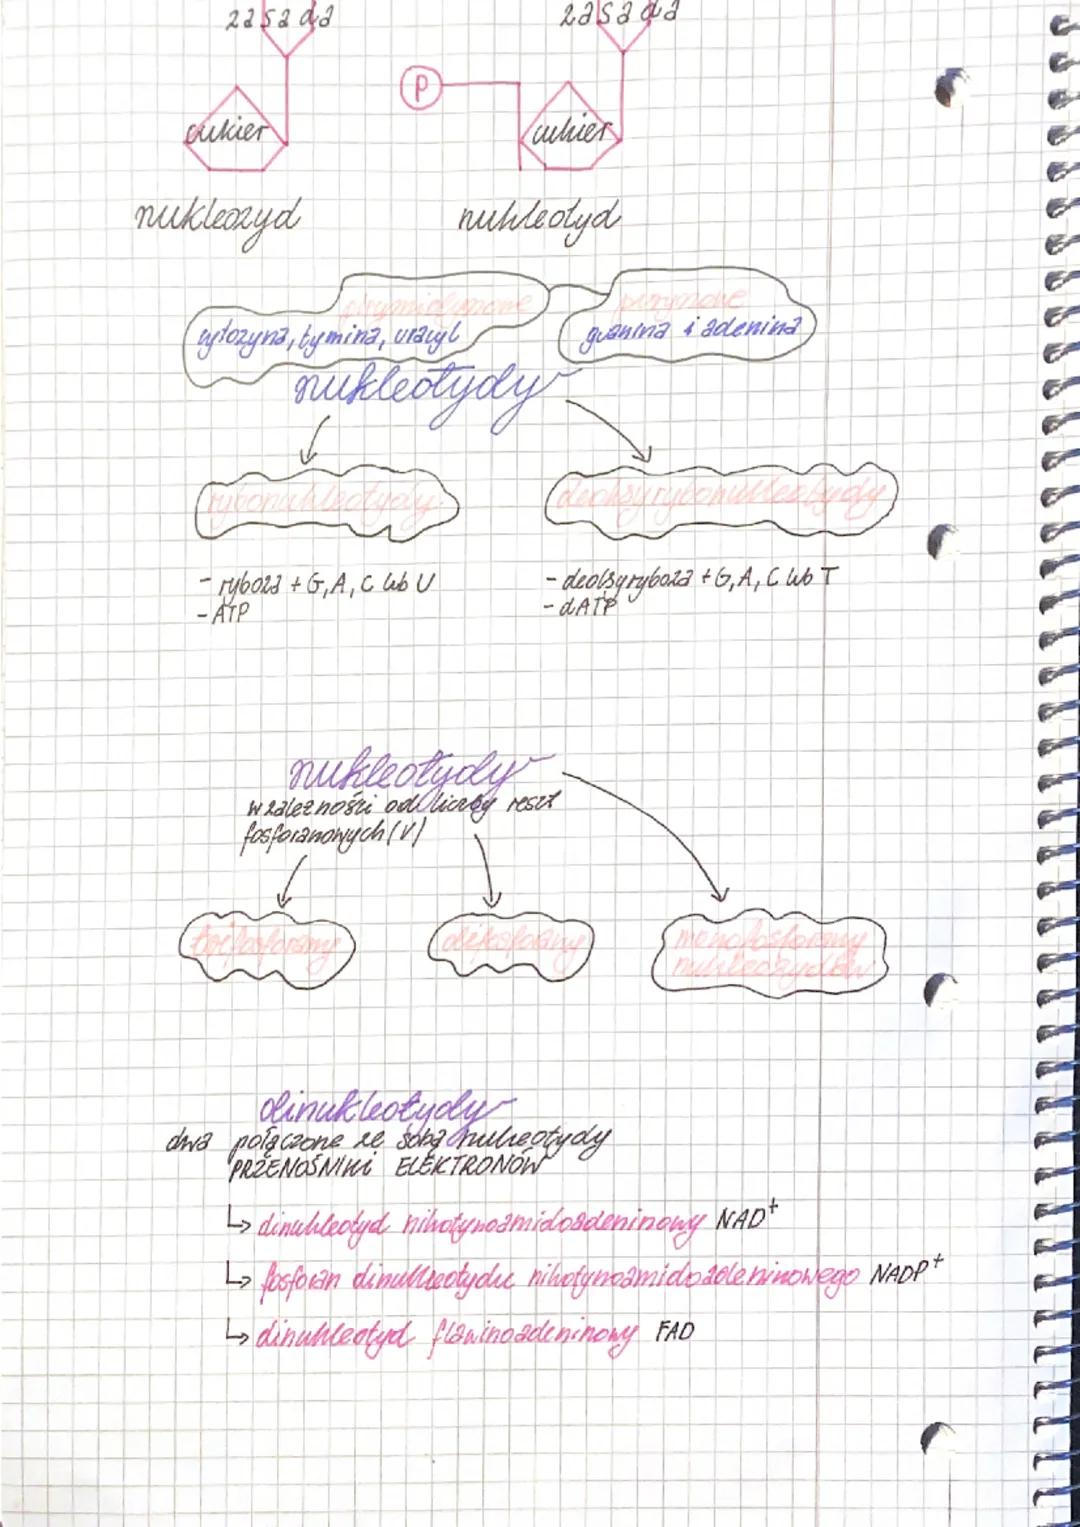 zasada
zasada
P
cukier
cukier
nukleozyd
nukleotyd
pirymidynowe
purynowe
cytozyna, tymina, uracyl
guanina i adenina
nukleotydy
rybonukleotydy
deoksyrybonukleotydy
- ryboza + G, A, C lub U
- deoksyryboza + G, A, C lub T
- ATP
- dATP
nukleotydy
w zależności od liczby reszt
fosforanowych (V)
trifosforany
difosforany
monofosforany
nukleozydów
dinukleotydy
dwa połączone ze sobą nukleotydy
PRZENOŚNIKI ELEKTRONÓW
↳ dinukleotyd nikotynoamidoadeninowy NAD+
↳ fosforan dinukleotydu nikotynoamidoadeninowego NADP+
↳ dinukleotyd flawinoadeninowy FAD